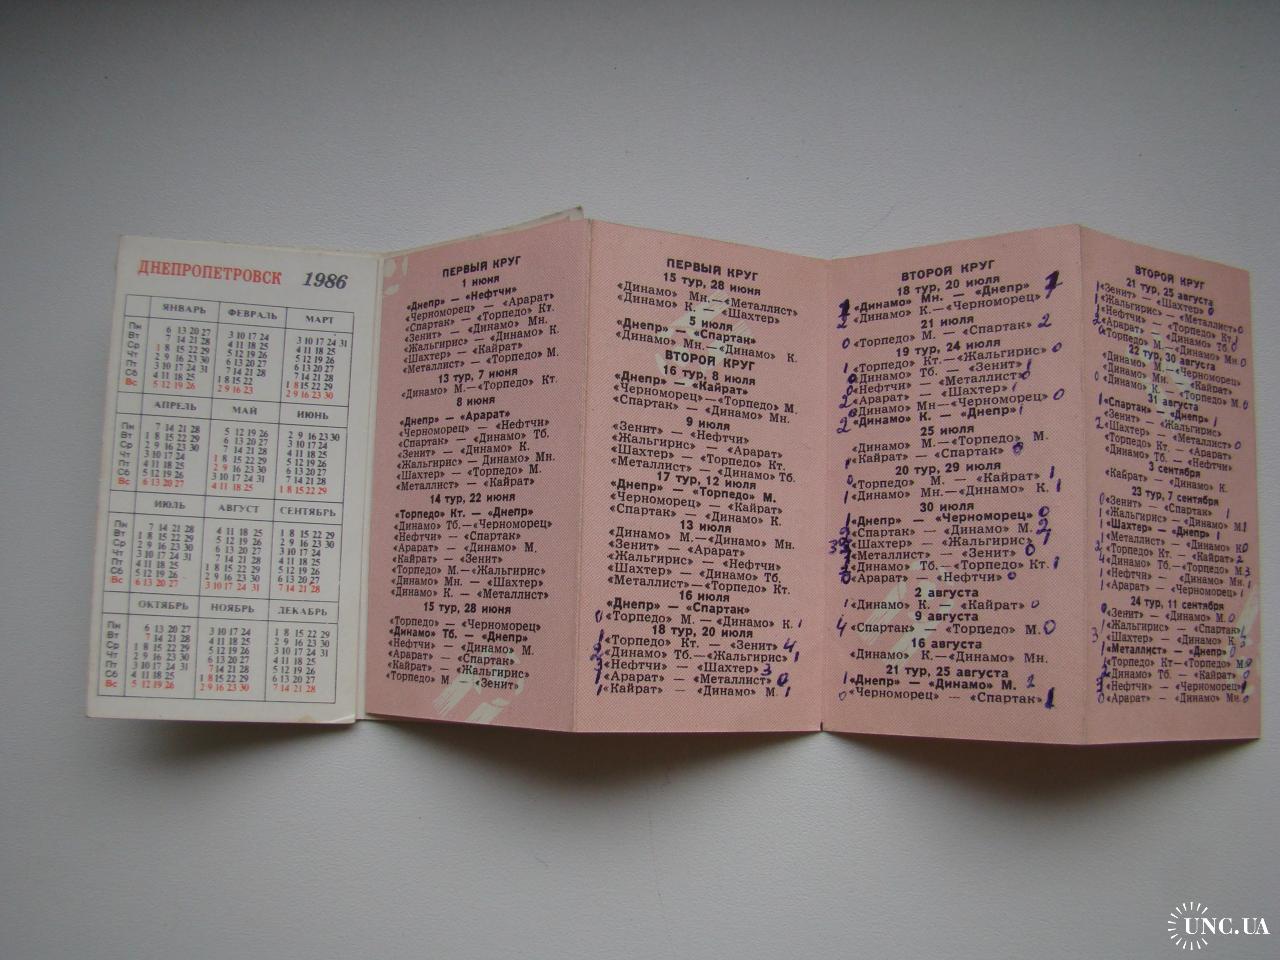 ДНЕПРОПЕТРОВСК 1986
ЯНВАРЬ ФЕВРАЛЬ МАРТ
Пн 6 13 20 27 3 10 17 24 3 10 17 24 31
Вт 7 14 21 28 4 11 18 25 4 11 18 25
Ср 1 8 15 22 29 5 12 19 26 5 12 19 26
Чт 2 9 16 23 30 6 13 20 27 6 13 20 27
Пт 3 10 17 24 31 7 14 21 28 7 14 21 28
Сб 4 11 18 25 1 8 15 22 1 8 15 22 29
Вс 5 12 19 26 2 9 16 23 2 9 16 23 30
АПРЕЛЬ МАЙ ИЮНЬ
Пн 7 14 21 28 5 12 19 26 2 9 16 23 30
Вт 1 8 15 22 29 6 13 20 27 3 10 17 24
Ср 2 9 16 23 30 7 14 21 28 4 11 18 25
Чт 3 10 17 24 1 8 15 22 29 5 12 19 26
Пт 4 11 18 25 2 9 16 23 30 6 13 20 27
Сб 5 12 19 26 3 10 17 24 31 7 14 21 28
Вс 6 13 20 27 4 11 18 25 1 8 15 22 29
ИЮЛЬ АВГУСТ СЕНТЯБРЬ
Пн 7 14 21 28 4 11 18 25 1 8 15 22 29
Вт 1 8 15 22 29 5 12 19 26 2 9 16 23 30
Ср 2 9 16 23 30 6 13 20 27 3 10 17 24
Чт 3 10 17 24 31 7 14 21 28 4 11 18 25
Пт 4 11 18 25 1 8 15 22 29 5 12 19 26
Сб 5 12 19 26 2 9 16 23 30 6 13 20 27
Вс 6 13 20 27 3 10 17 24 31 7 14 21 28
ОКТЯБРЬ НОЯБРЬ ДЕКАБРЬ
Пн 6 13 20 27 3 10 17 24 1 8 15 22 29
Вт 7 14 21 28 4 11 18 25 2 9 16 23 30
Ср 1 8 15 22 29 5 12 19 26 3 10 17 24 31
Чт 2 9 16 23 30 6 13 20 27 4 11 18 25
Пт 3 10 17 24 31 7 14 21 28 5 12 19 26
Сб 4 11 18 25 1 8 15 22 29 6 13 20 27
Вс 5 12 19 26 2 9 16 23 30 7 14 21 28
ПЕРВЫЙ КРУГ
1 июня
«Днепр» — «Нефтчи»
«Черноморец» — «Арарат»
«Спартак» — «Торпедо» Кт.
«Зенит» — «Динамо» Мн.
«Жальгирис» — «Динамо» К.
«Шахтер» — «Кайрат»
«Металлист» — «Торпедо» М.
13 тур, 7 июня
«Динамо» М.—«Торпедо» Кт.
8 июня
«Днепр» — «Арарат»
«Черноморец» — «Нефтчи»
«Спартак» — «Динамо» Тб.
«Зенит» — «Динамо» К.
«Жальгирис» — «Динамо» Мн.
«Шахтер» — «Торпедо» М.
«Металлист» — «Кайрат»
14 тур, 22 июня
«Торпедо» Кт. — «Днепр»
«Динамо» Тб.—«Черноморец»
«Нефтчи» — «Спартак»
«Арарат» — «Динамо» М.
«Кайрат» — «Зенит»
«Торпедо» М.—«Жальгирис»
«Динамо» Мн. — «Шахтер»
«Динамо» К. — «Металлист»
15 тур, 28 июня
«Торпедо» — «Черноморец»
«Динамо» Тб. — «Днепр»
«Нефтчи» — «Динамо» М.
«Арарат» — «Спартак»
«Кайрат» — «Жальгирис»
«Торпедо» М. — «Зенит»
ПЕРВЫЙ КРУГ
15 тур, 28 июня
«Динамо» Мн.—«Металлист»
«Динамо» К. — «Шахтер»
5 июля
«Днепр» — «Спартак»
«Динамо» Мн.—«Динамо» К.
ВТОРОЙ КРУГ
16 тур, 8 июля
«Днепр» — «Кайрат»
«Черноморец»—«Торпедо» М.
«Спартак» — «Динамо» Мн.
9 июля
«Зенит» — «Нефтчи»
«Жальгирис» — «Арарат»
«Шахтер» — «Торпедо» Кт.
«Металлист» — «Динамо» Тб.
17 тур, 12 июля
«Днепр» — «Торпедо» М.
«Черноморец» — «Кайрат»
«Спартак» — «Динамо» К.
13 июля
«Динамо» М.—«Динамо» Мн.
«Зенит» — «Арарат»
«Жальгирис» — «Нефтчи»
«Шахтер» — «Динамо» Тб.
«Металлист»—«Торпедо» Кт.
16 июля
«Днепр» — «Спартак»
0 «Торпедо» М. — «Динамо» К. 1
18 тур, 20 июля
«Торпедо» Кт. — «Зенит» 4
«Динамо» Тб.—«Жальгирис» 1
3 «Нефтчи» — «Шахтер» 3
1 «Арарат» — «Металлист» 0
1 «Кайрат» — «Динамо» М. 1
ВТОРОЙ КРУГ
18 тур, 20 июля
«Динамо» Мн. — «Днепр» 1
2 «Динамо» К.—«Черноморец»
21 июля
0 «Торпедо» М. — «Спартак» 2
19 тур, 24 июля
1 «Торпедо» Кт.—«Жальгирис» 0
«Динамо» Тб. — «Зенит» 1
0 «Нефтчи» — «Металлист» 0
2 «Арарат» — «Шахтер» 1
«Динамо» Мн—«Черноморец» 0
2 «Динамо» К. — «Днепр» 1
25 июля
«Динамо» М.—«Торпедо» М.
1 «Кайрат» — «Спартак» 0
20 тур, 29 июля
0 «Торпедо» М. — «Кайрат» 1
1 «Динамо» Мн. — «Динамо» К. 1
30 июля
1 «Днепр» — «Черноморец» 0
2 «Спартак» — «Динамо» М. 2
3 «Шахтер» — «Жальгирис» 1
«Металлист» — «Зенит» 0
«Динамо» Тб.—«Торпедо» Кт. 1
«Арарат» — «Нефтчи» 0
2 августа
1 «Динамо» К. — «Кайрат» 0
9 августа
4 «Спартак» — «Торпедо» М. 0
16 августа
«Динамо» К.—«Динамо» Мн.
21 тур, 25 августа
1 «Днепр» — «Динамо» М. 2
0 «Черноморец» — «Спартак» 1
ВТОРОЙ КРУГ
21 тур, 25 августа
1 «Зенит» — «Шахтер» 0
1 «Жальгирис»—«Металлист» 0
1 «Нефтчи» — «Торпедо» Кт. 1
2 «Арарат» — «Динамо» Тб. 0
«Торпедо» М.—«Динамо» Мн. 0
22 тур, 30 августа
«Динамо» М.—«Черноморец»
0 «Динамо» Мн. — «Кайрат»
0 «Динамо» К. — «Торпедо» М. 0
31 августа
1 «Спартак» — «Днепр» 1
«Зенит» — «Жальгирис»
2 «Шахтер» — «Металлист» 0
«Торпедо» Кт. — «Арарат»
«Динамо» Тб. — «Нефтчи»
3 сентября
«Кайрат» — «Динамо» К.
23 тур, 7 сентября
0 «Зенит» — «Спартак» 1
1 «Жальгирис» — «Динамо» М. 1
1 «Шахтер» — «Днепр» 1
1 «Металлист» — «Динамо» К. 0
2 «Торпедо» Кт. — «Кайрат» 2
4 «Динамо» Тб.—«Торпедо» М. 3
1 «Нефтчи» — «Динамо» Мн. 1
1 «Арарат» — «Черноморец» 1
24 тур, 11 сентября
0 «Зенит» — «Динамо» М. 0
«Жальгирис» — «Спартак» 1
3 «Шахтер» — «Динамо» К. 3
1 «Металлист» — «Днепр» 0
1 «Торпедо» Кт—«Торпедо» М. 0
2 «Динамо» Тб. — «Кайрат» 0
3 «Нефтчи» — «Черноморец» 1
0 «Арарат» — «Динамо» Мн. 0
UNC.UA